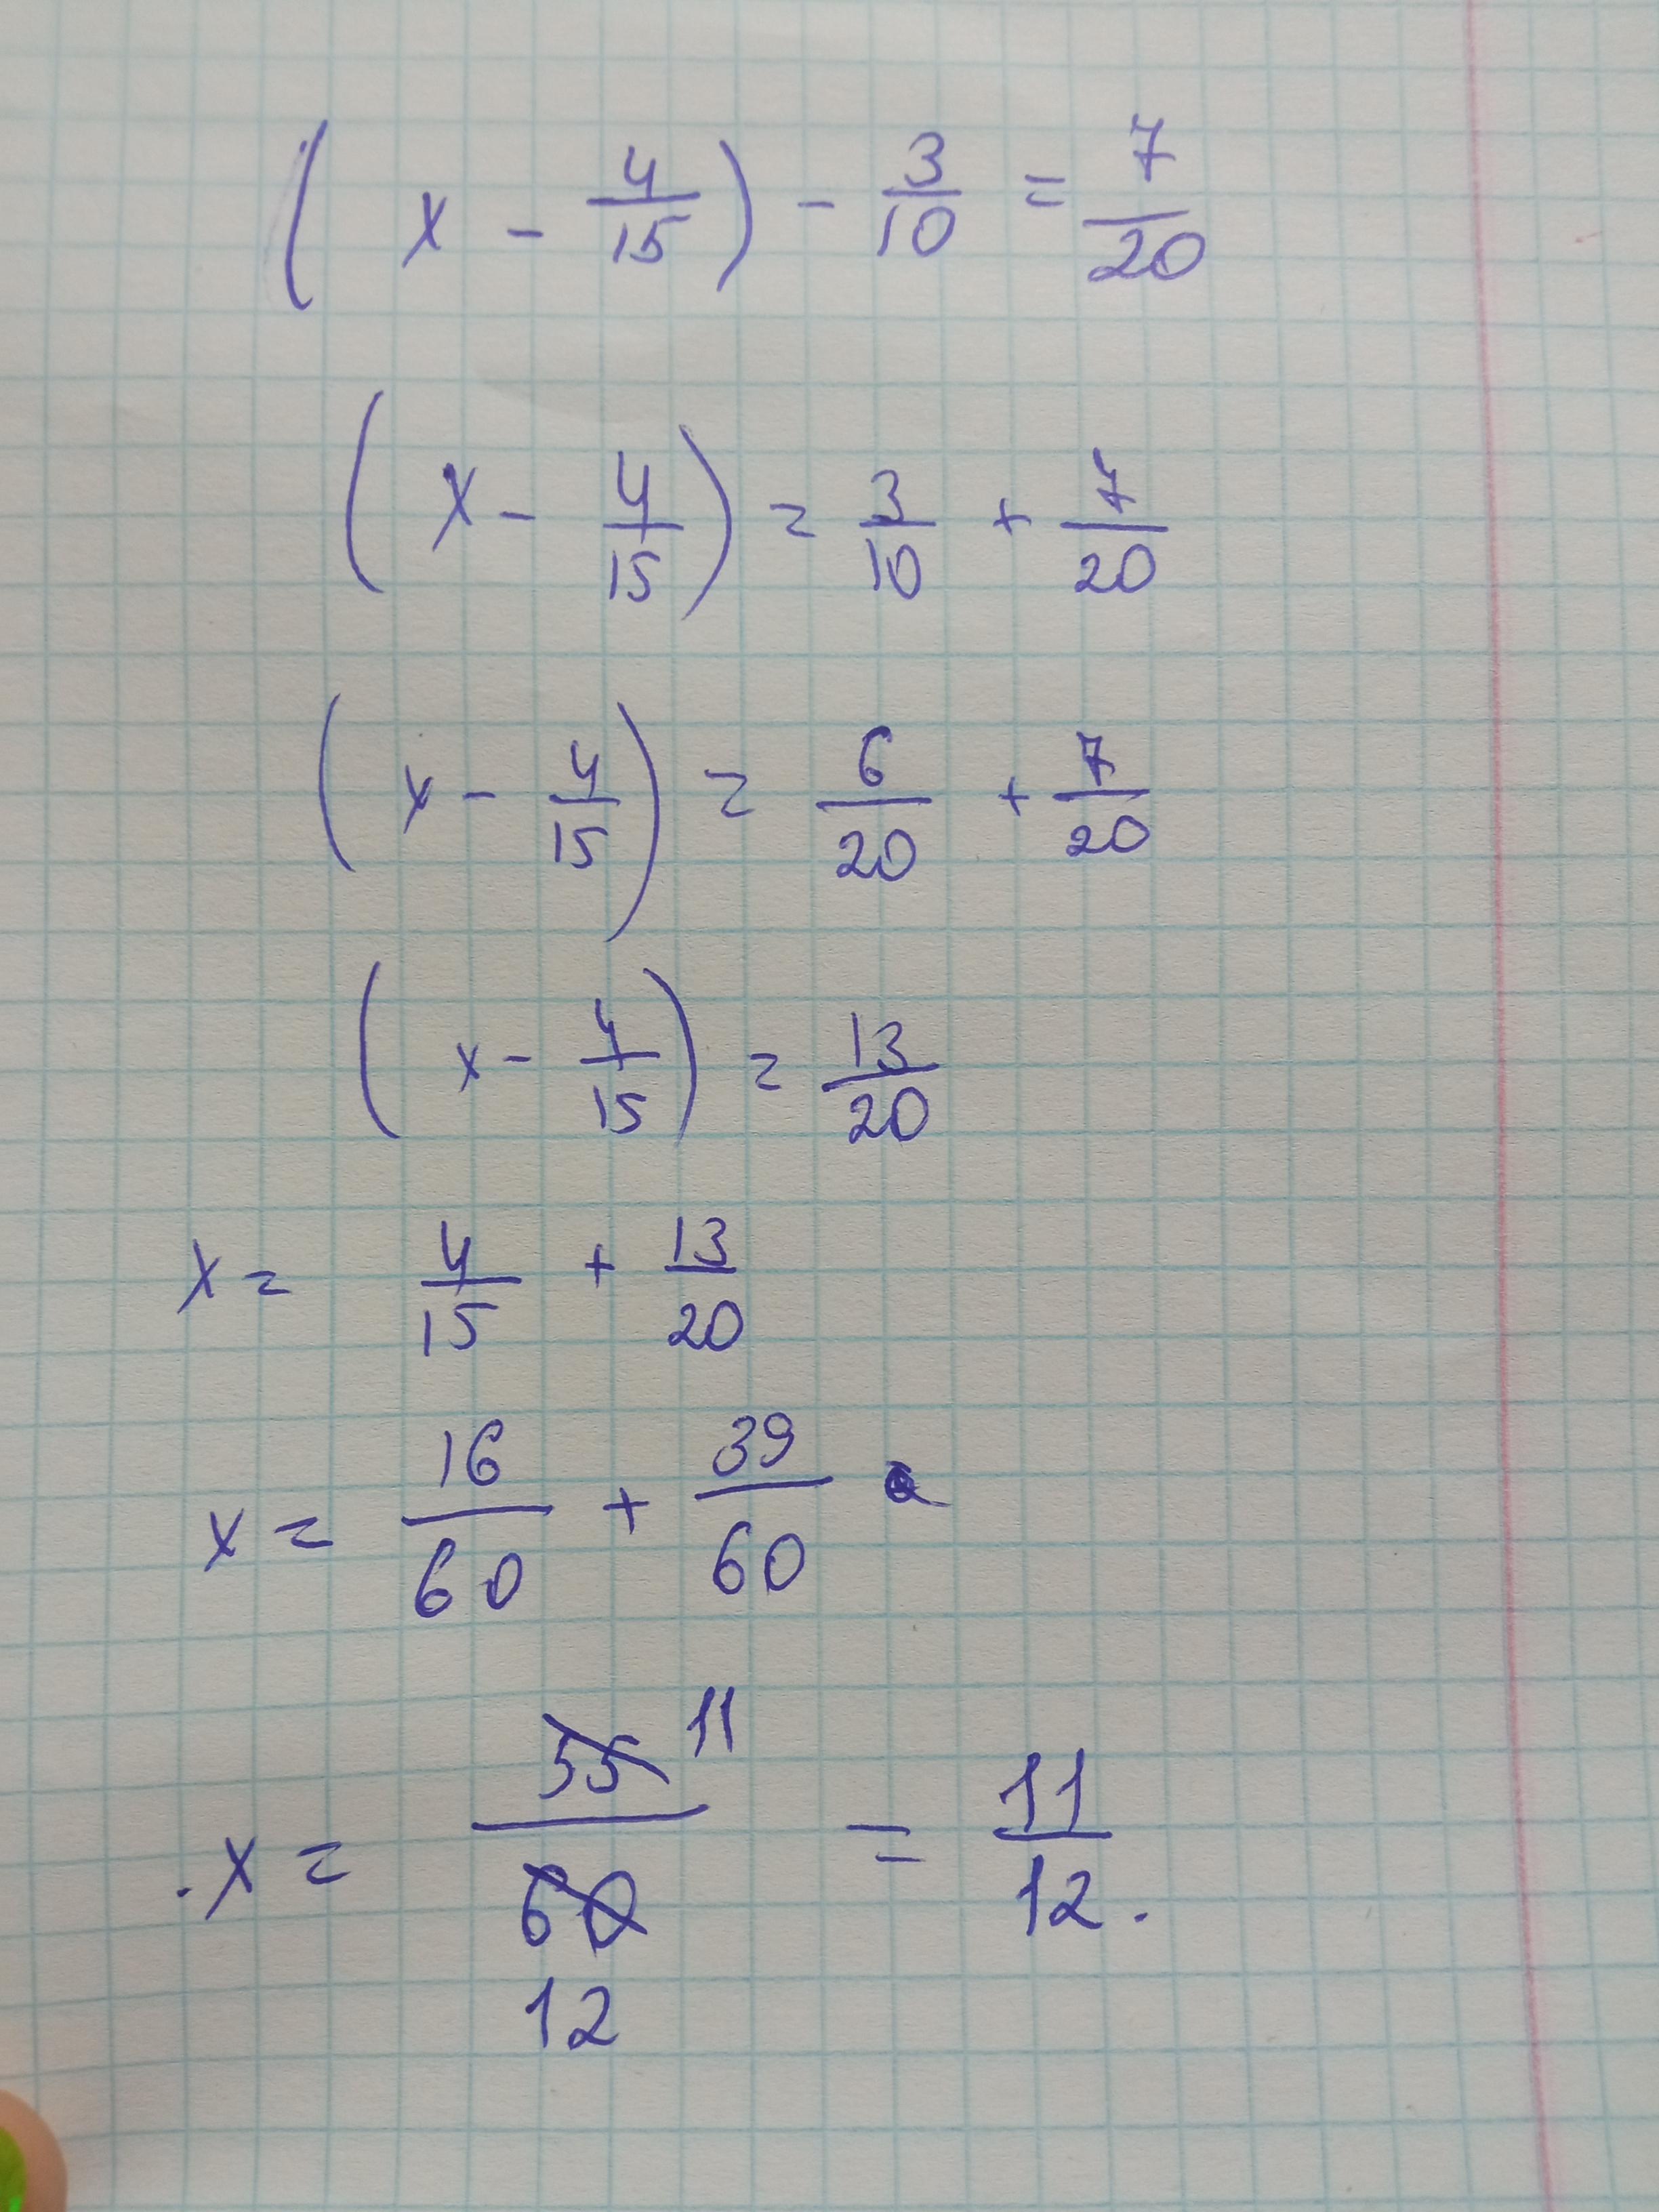 (x - 4/15) - 3/10 = 7/20
(x - 4/15) = 3/10 + 7/20
(x - 4/15) = 6/20 + 7/20
(x - 4/15) = 13/20
x = 4/15 + 13/20
x = 16/60 + 39/60
11
x = 55/60 = 11/12.
12